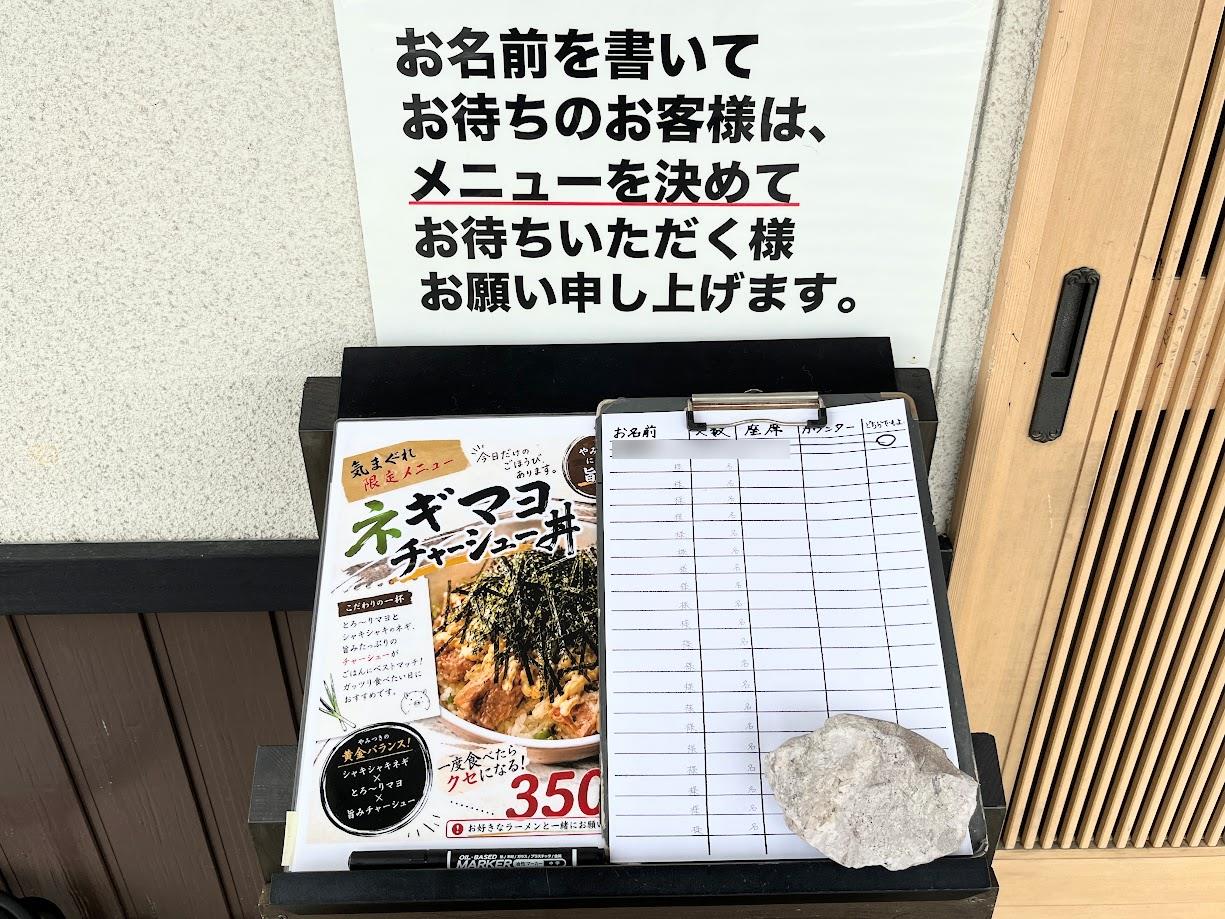 お名前を書いて
お待ちのお客様は、
メニューを決めて
お待ちいただく様
お願い申し上げます。
気まぐれ
限定メニュー
今日だけの
ごほうび、
あります。
ネギマヨ
チャーシュー丼
こだわりの一杯
とろ〜りマヨと
シャキシャキのネギ、
旨みたっぷりの
チャーシューが
ごはんにベストマッチ!
ガッツリ食べたい日に
おすすめです。
やみつきの
黄金バランス!
シャキシャキネギ
×
とろ〜りマヨ
×
旨みチャーシュー
一度食べたら
クセになる!
350
お好きなラーメンと一緒にお願い
OIL-BASED
MARKER
お名前 人数 座席 カウンター どちらでもよ
様 名
様 名
様 名
様 名
様 名
様 名
様 名
様 名
様 名
様 名
様 名
様 名
様 名
様 名
様 名
様 名
様 名
様 名
様 名
様 名